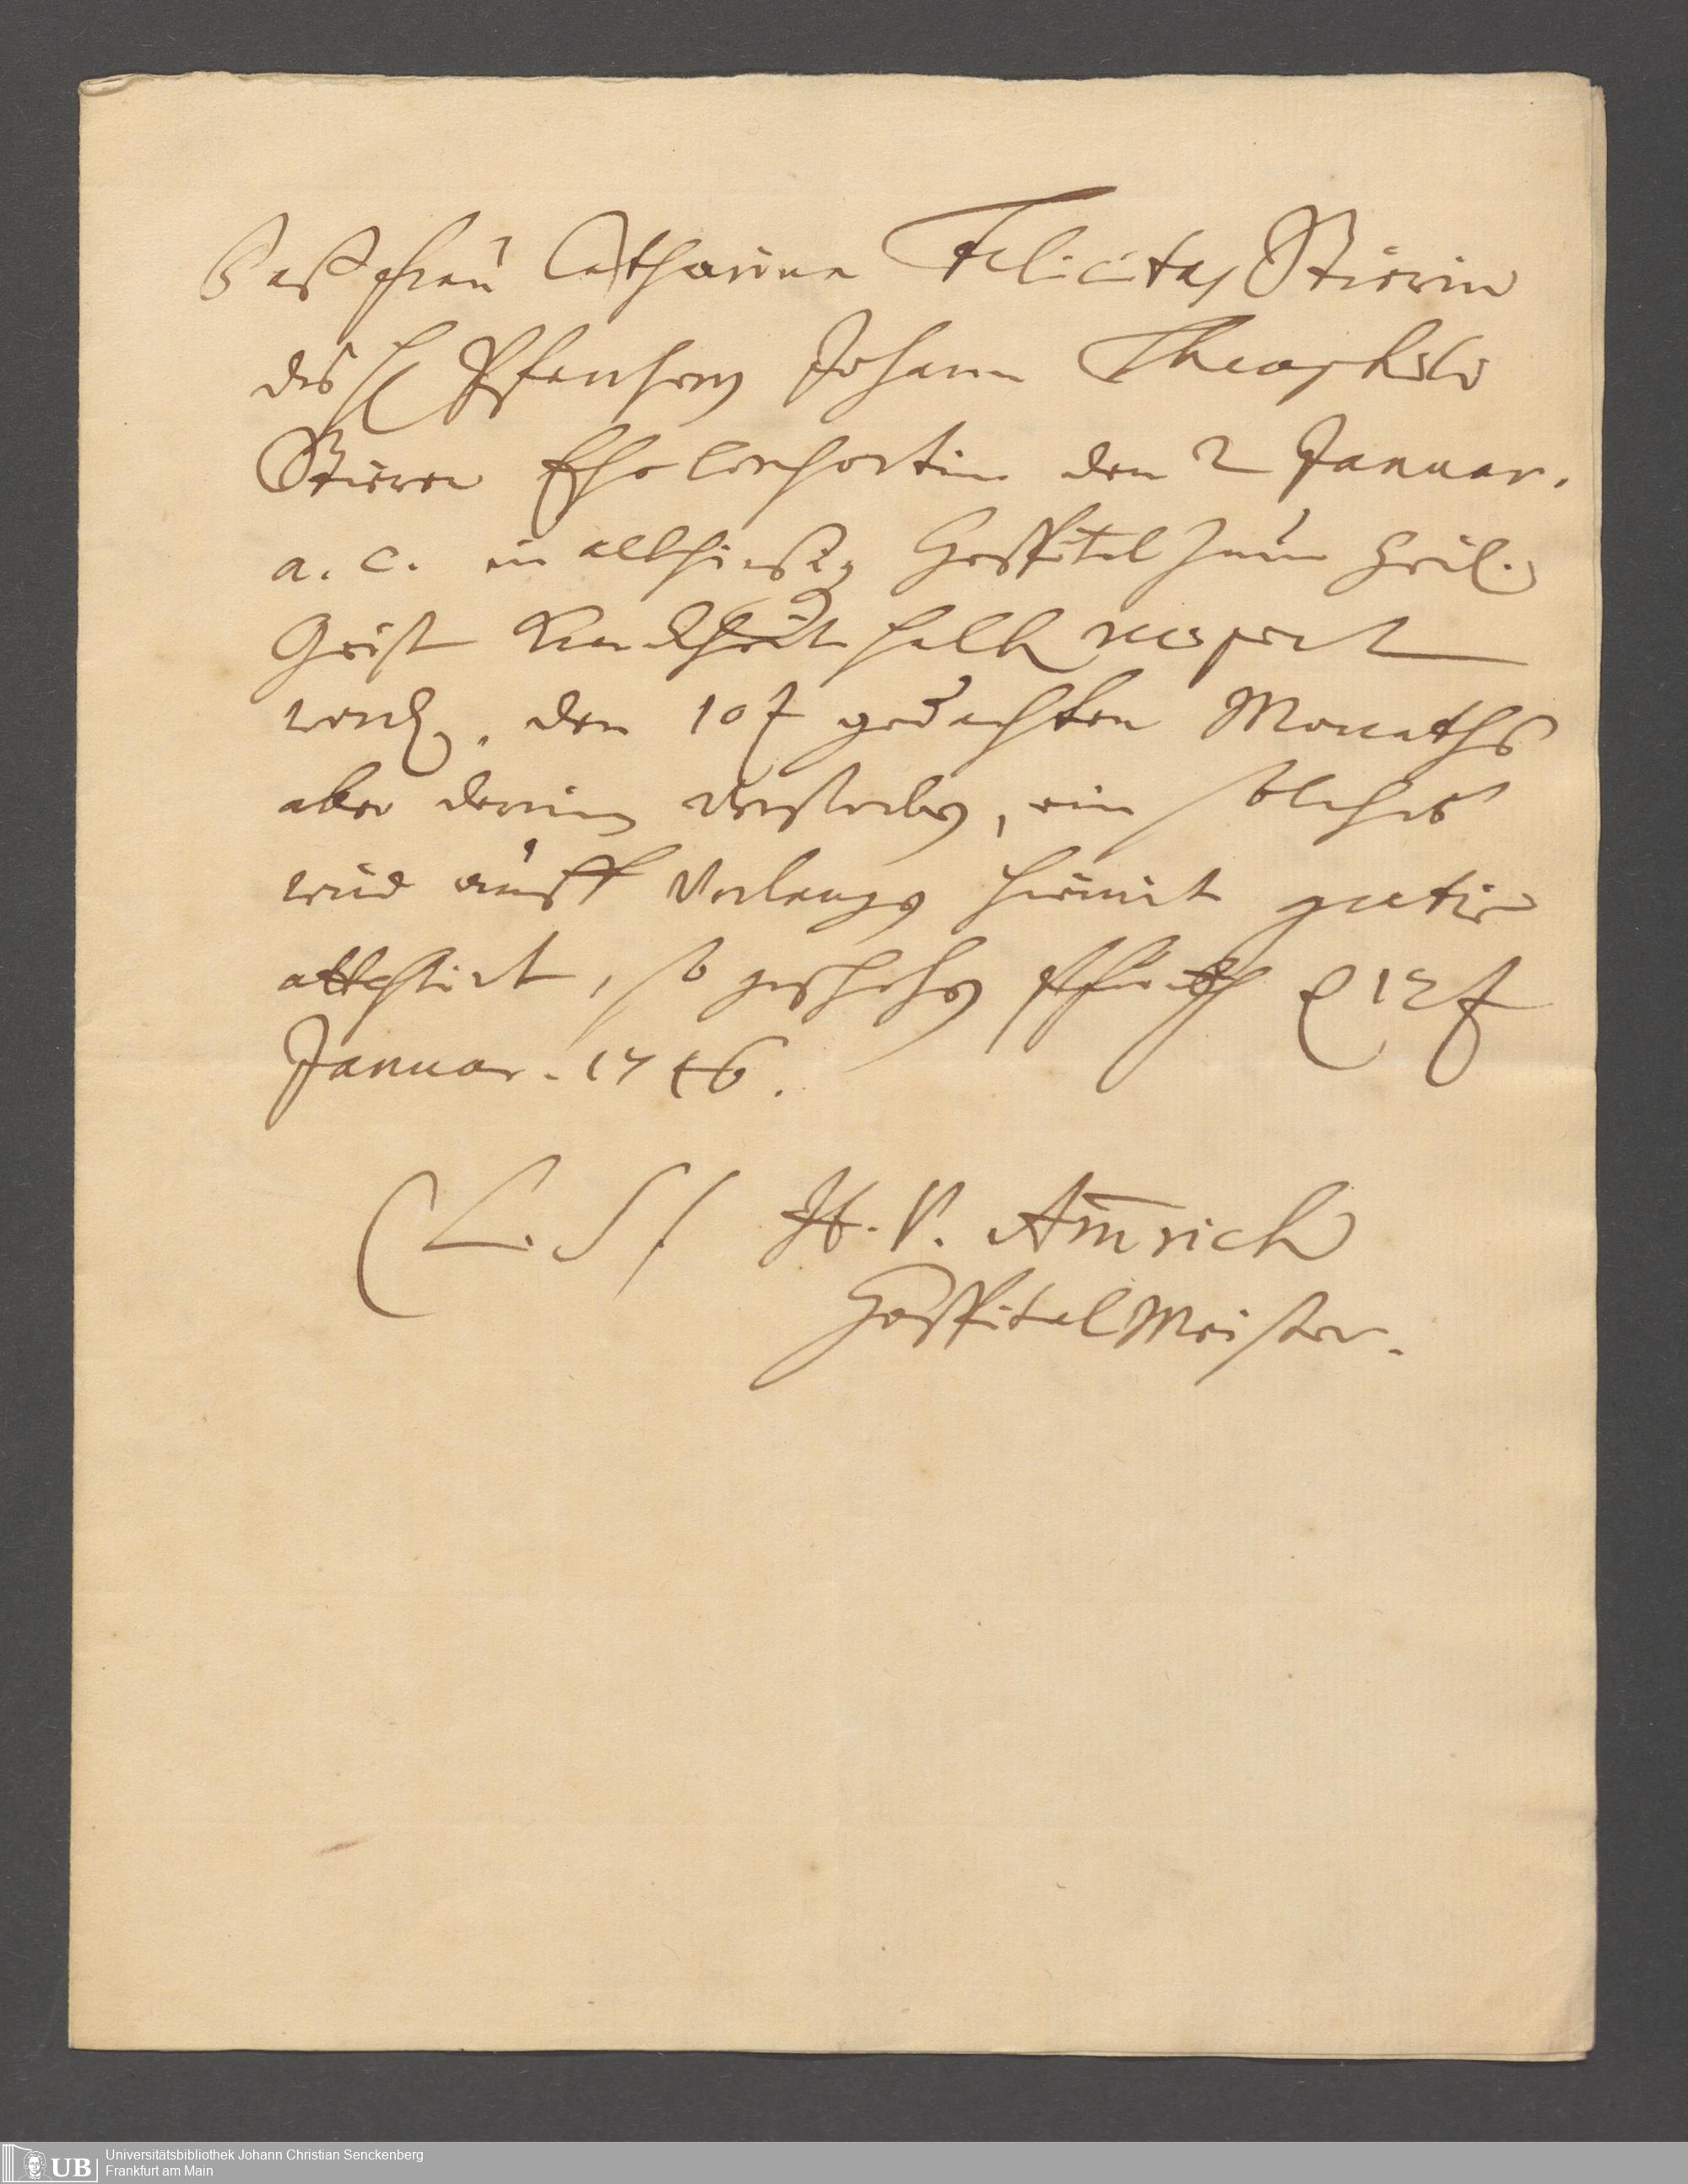 Daß Frau Catharina Felicitas Stierin
des H Pfarrherrn Johann Theophili
Stieren Ehe Consortin den 2 Januar.
a. c. in allhiesig Hospital zum Heil.
Geist Kranckheit halb recipirt
word, den 10t gedachten Monaths
aber darin verstorben, ein solches
wird auff Verlangen hiermit
attestirt, so geschehen d 12t
Januar. 1746.
(L. S.) H. V. Am̄rich
Hospital Meister.
UB Universitätsbibliothek Johann Christian Senckenberg
Frankfurt am Main